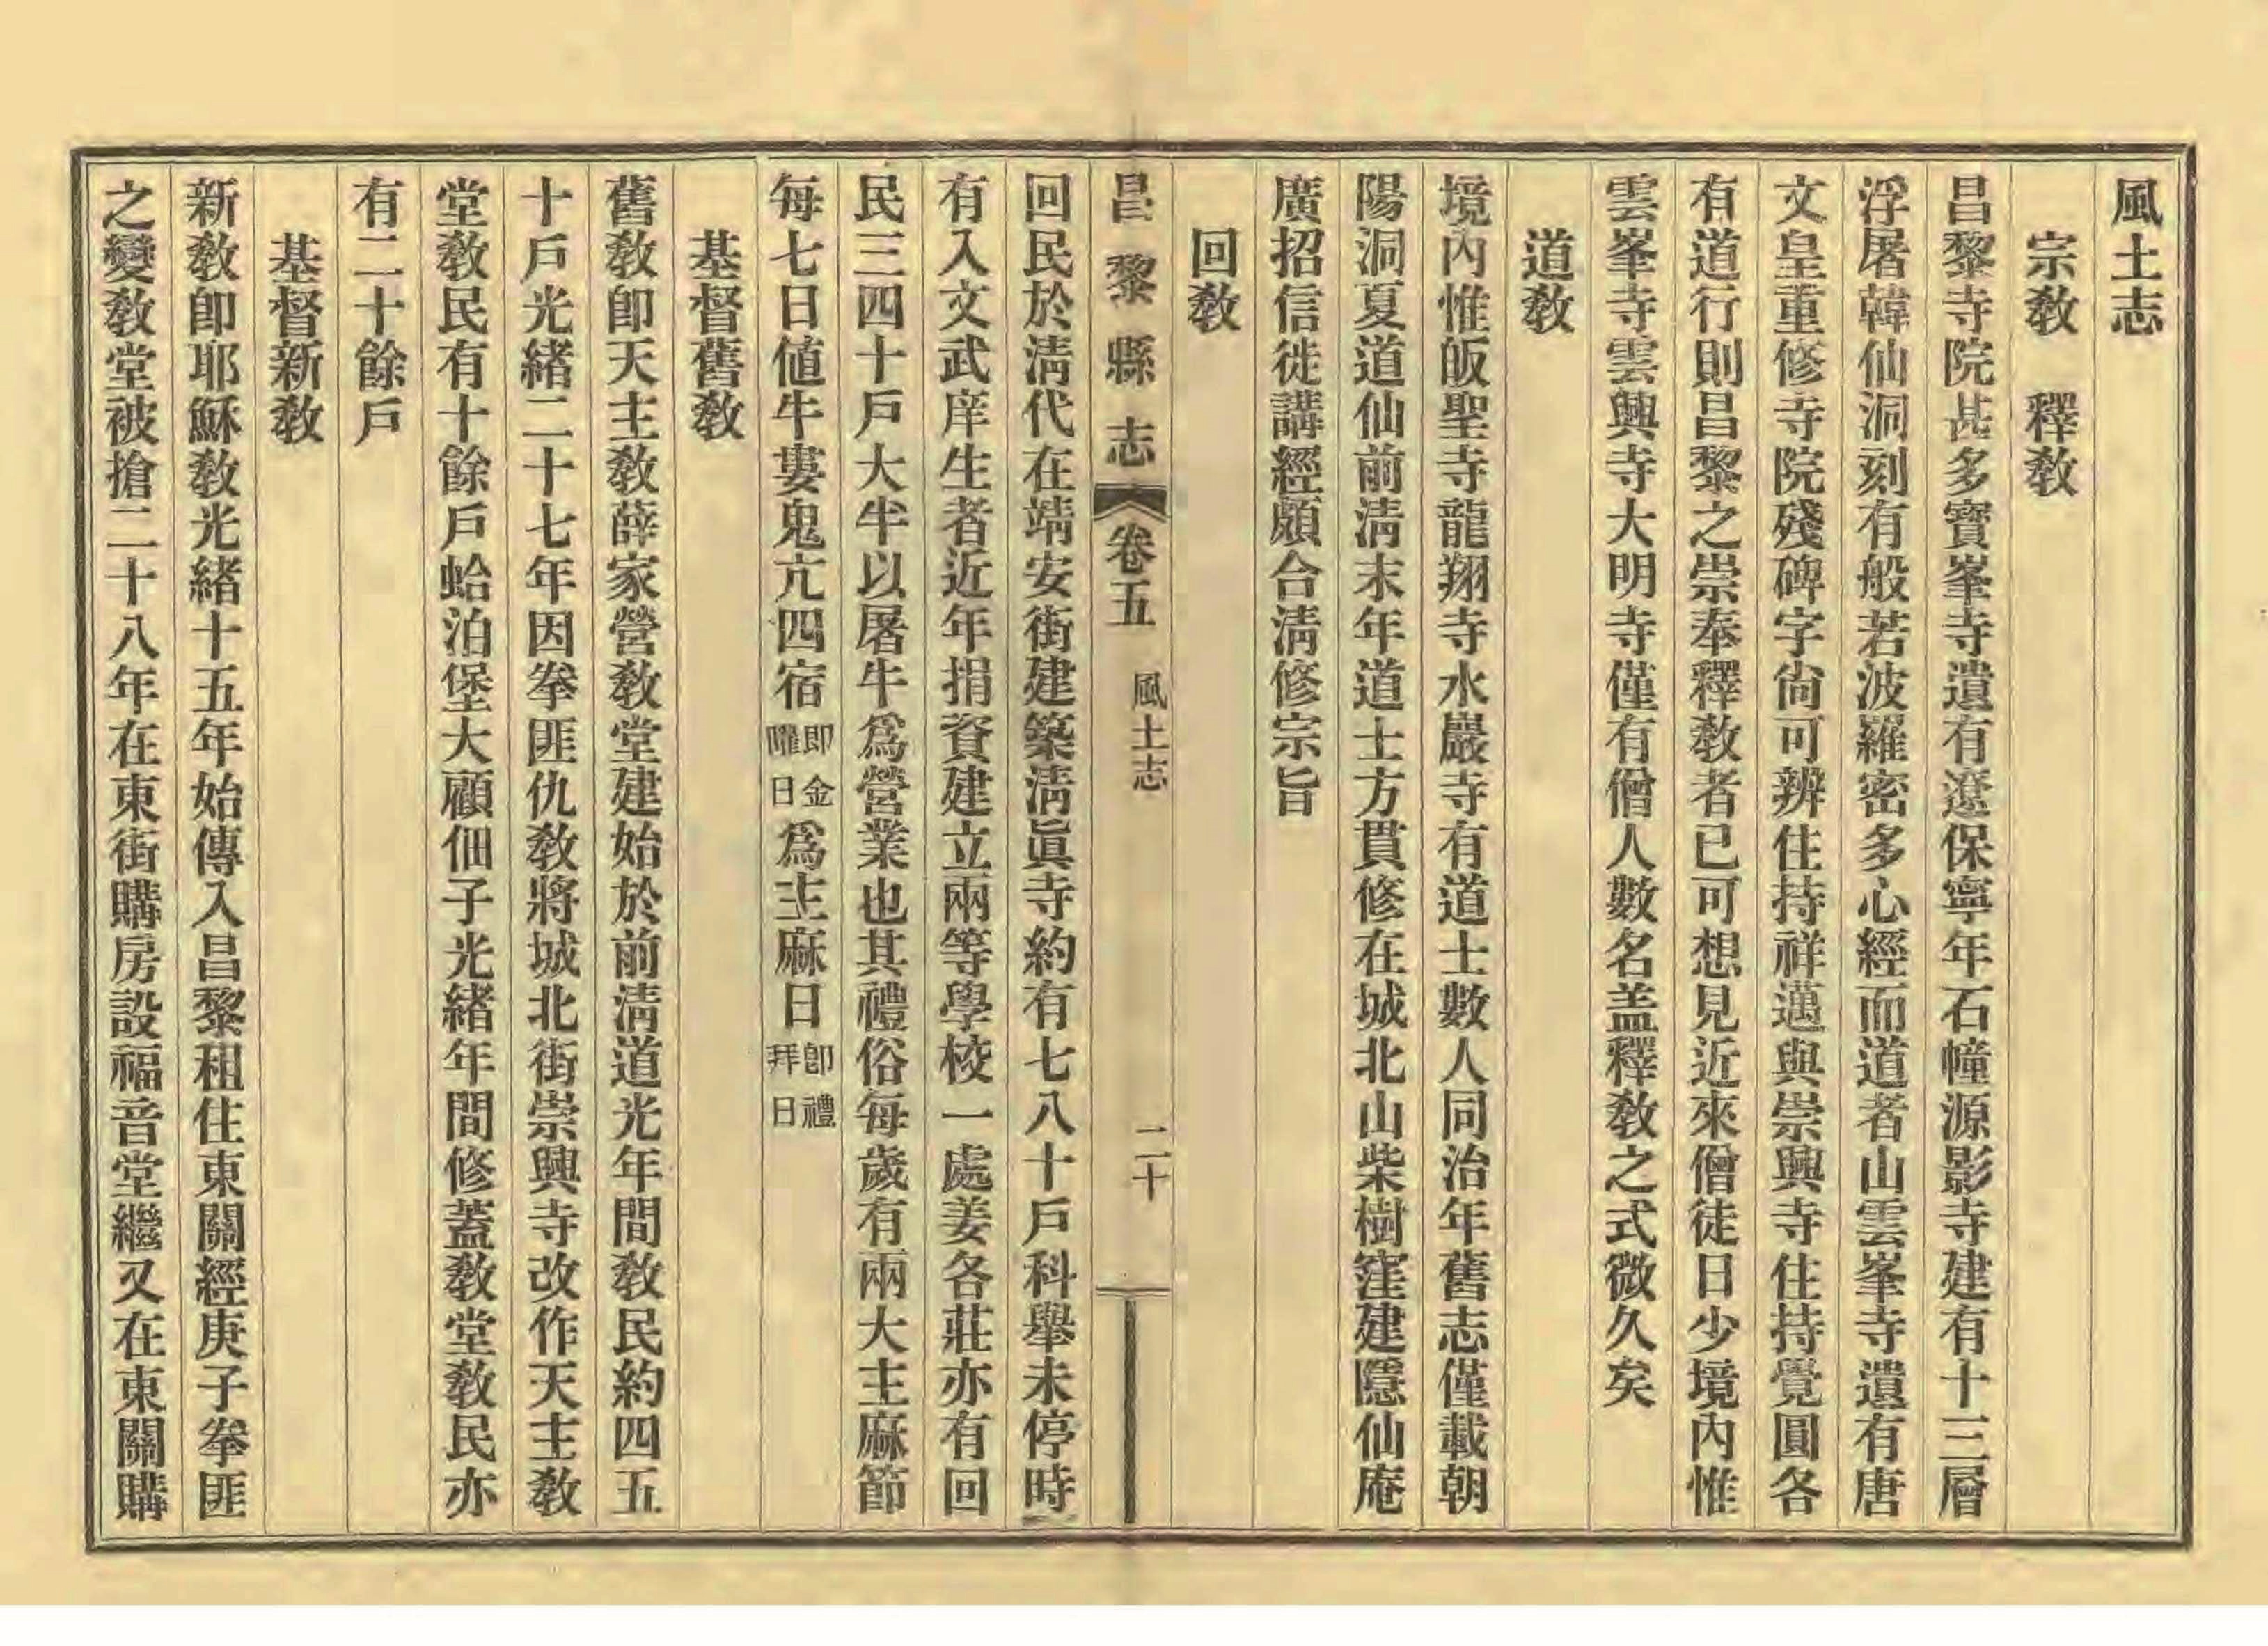 風土志
宗敎　釋敎
昌黎寺院甚多寶峯寺遺有遼保寧年石幢源影寺建有十三層
浮屠韓仙洞刻有般若波羅密多心經而道者山雲峯寺遺有唐
文皇重修寺院殘碑字尙可辨住持祥邁與崇興寺住持覺圓各
有道行則昌黎之崇奉釋敎者已可想見近來僧徒日少境內惟
雲峯寺雲興寺大明寺僅有僧人數名盖釋敎之式微久矣
道敎
境內惟皈聖寺龍翔寺水巖寺有道士數人同治年舊志僅載朝
陽洞夏道仙前淸末年道士方貫修在城北山柴樹窪建隱仙庵
廣招信徒講經頗合淸修宗旨
回敎
昌黎縣志　卷五　風土志　二十
回民於淸代在靖安街建築淸眞寺約有七八十戶科舉未停時
有入文武庠生者近年捐資建立兩等學校一處姜各莊亦有回
民三四十戶大半以屠牛爲營業也其禮俗每歲有兩大主麻節
每七日値牛婁鬼亢四宿即金曜日爲主麻日卽禮拜日
基督舊敎
舊敎卽天主敎薛家營敎堂建始於前淸道光年間敎民約四五
十戶光緒二十七年因拳匪仇敎將城北街崇興寺改作天主敎
堂敎民有十餘戶蛤泊堡大顧佃子光緒年間修蓋敎堂敎民亦
有二十餘戶
基督新敎
新敎卽耶穌敎光緒十五年始傳入昌黎租住東關經庚子拳匪
之變敎堂被搶二十八年在東街購房設福音堂繼又在東關購